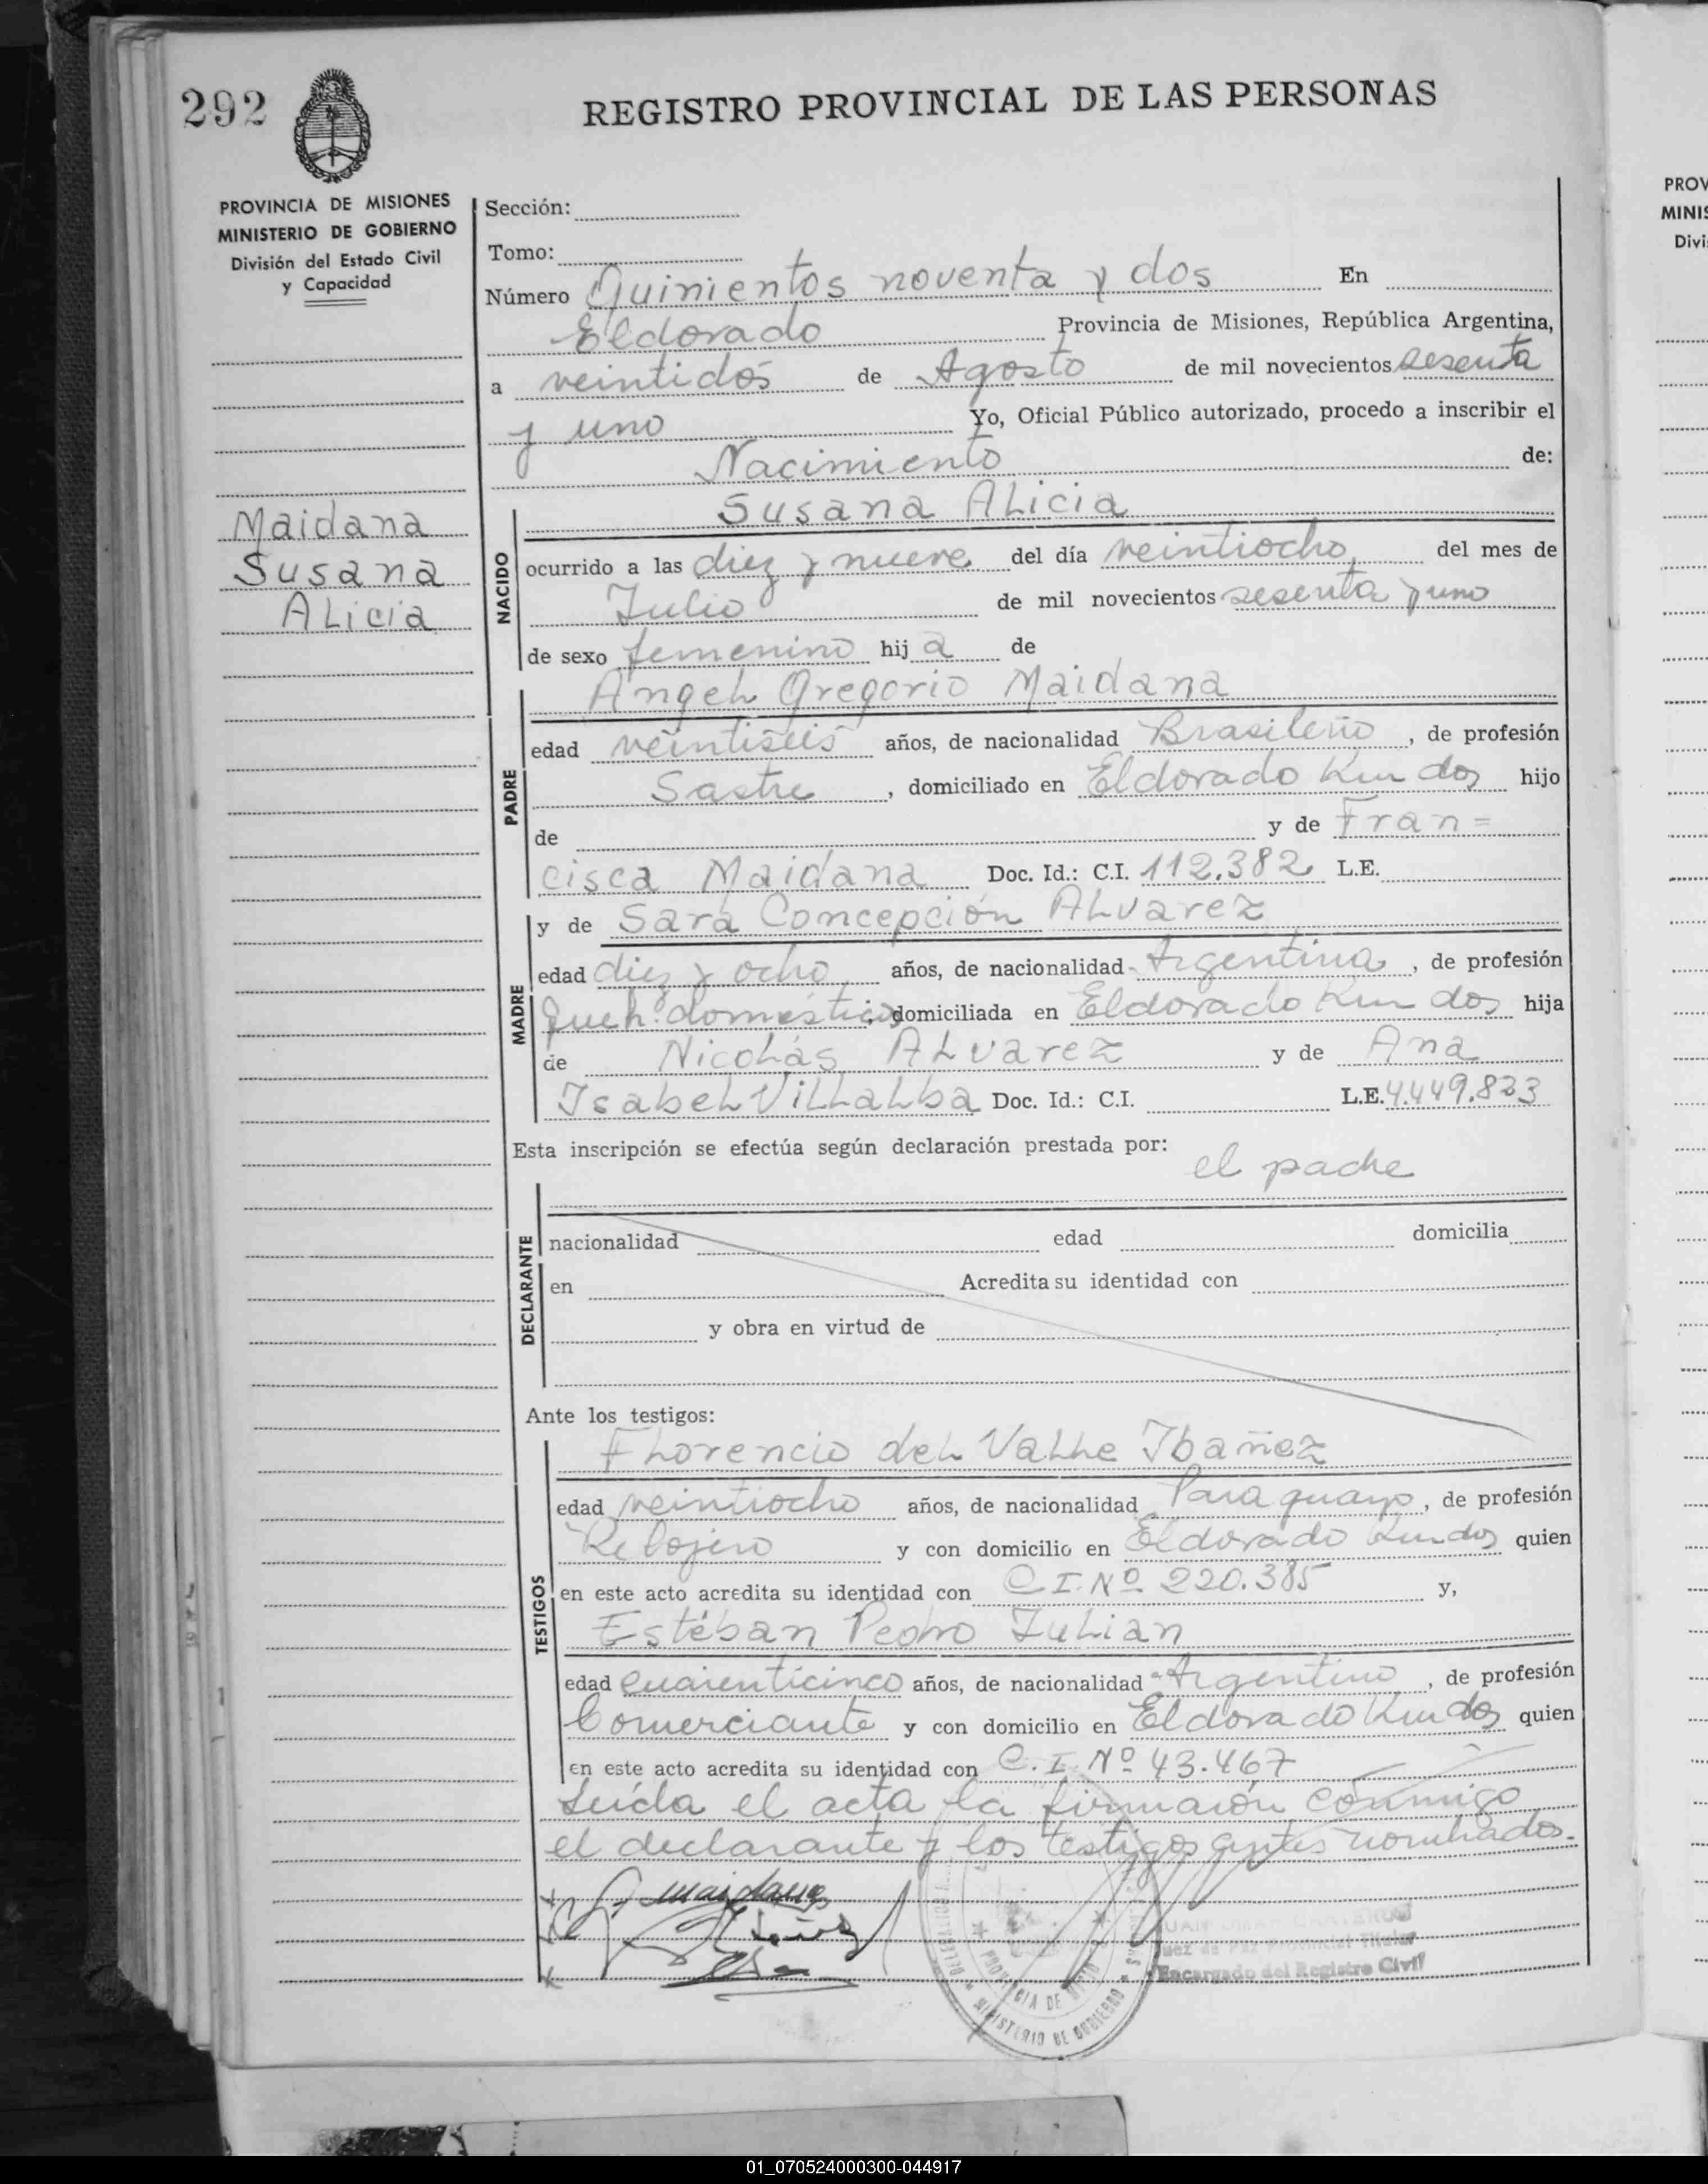 292
REGISTRO PROVINCIAL DE LAS PERSONAS
PROVINCIA DE MISIONES
MINISTERIO DE GOBIERNO
División del Estado Civil
y Capacidad
Maidana
Susana
Alicia
Sección:
Tomo:
Número Quinientos noventa y dos En
Eldorado Provincia de Misiones, República Argentina,
a veintidós de Agosto de mil novecientos sesenta
y uno Yo, Oficial Público autorizado, procedo a inscribir el
Nacimiento de:
Susana Alicia
NACIDO
ocurrido a las diez y nueve del día veintiocho del mes de
Julio de mil novecientos sesenta y uno
de sexo femenino hij a de
Angel Gregorio Maidana
PADRE
edad veintiseis años, de nacionalidad Brasileño, de profesión
Sastre, domiciliado en Eldorado Km dos hijo
de y de Fran=
cisca Maidana Doc. Id.: C.I. 112.382 L.E.
MADRE
y de Sara Concepción Alvarez
edad diez y ocho años, de nacionalidad Argentina, de profesión
Queh. domésticos, domiciliada en Eldorado Km dos hija
de Nicolás Alvarez y de Ana
Isabel Villalba Doc. Id.: C.I. L.E. 4.449.823
Esta inscripción se efectúa según declaración prestada por:
el padre
DECLARANTE
nacionalidad edad domicilia
en Acredita su identidad con
y obra en virtud de
Ante los testigos:
TESTIGOS
Florencio del Valle Ibañez
edad veintiocho años, de nacionalidad Paraguayo, de profesión
Relojero y con domicilio en Eldorado Km dos quien
en este acto acredita su identidad con C.I. Nº 220.385 y,
Estéban Pedro Julian
edad cuarenticinco años, de nacionalidad Argentino, de profesión
Comerciante y con domicilio en Eldorado Km dos quien
en este acto acredita su identidad con C.I. Nº 43.467
Leída el acta la firmarón conmigo
el declarante y los testigos antes nombrados.
Maidana
Juez de Paz Provincial Titular
Encargado del Registro Civil
PROVINCIA DE
MINISTERIO DE GOBIERNO
PROV
MINIS
Divi
01_070524000300-044917